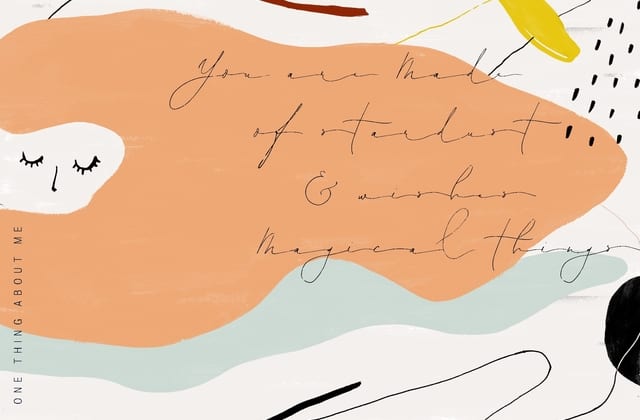 You are Made
of stardust
& wishes
Magical things
ONE THING ABOUT ME